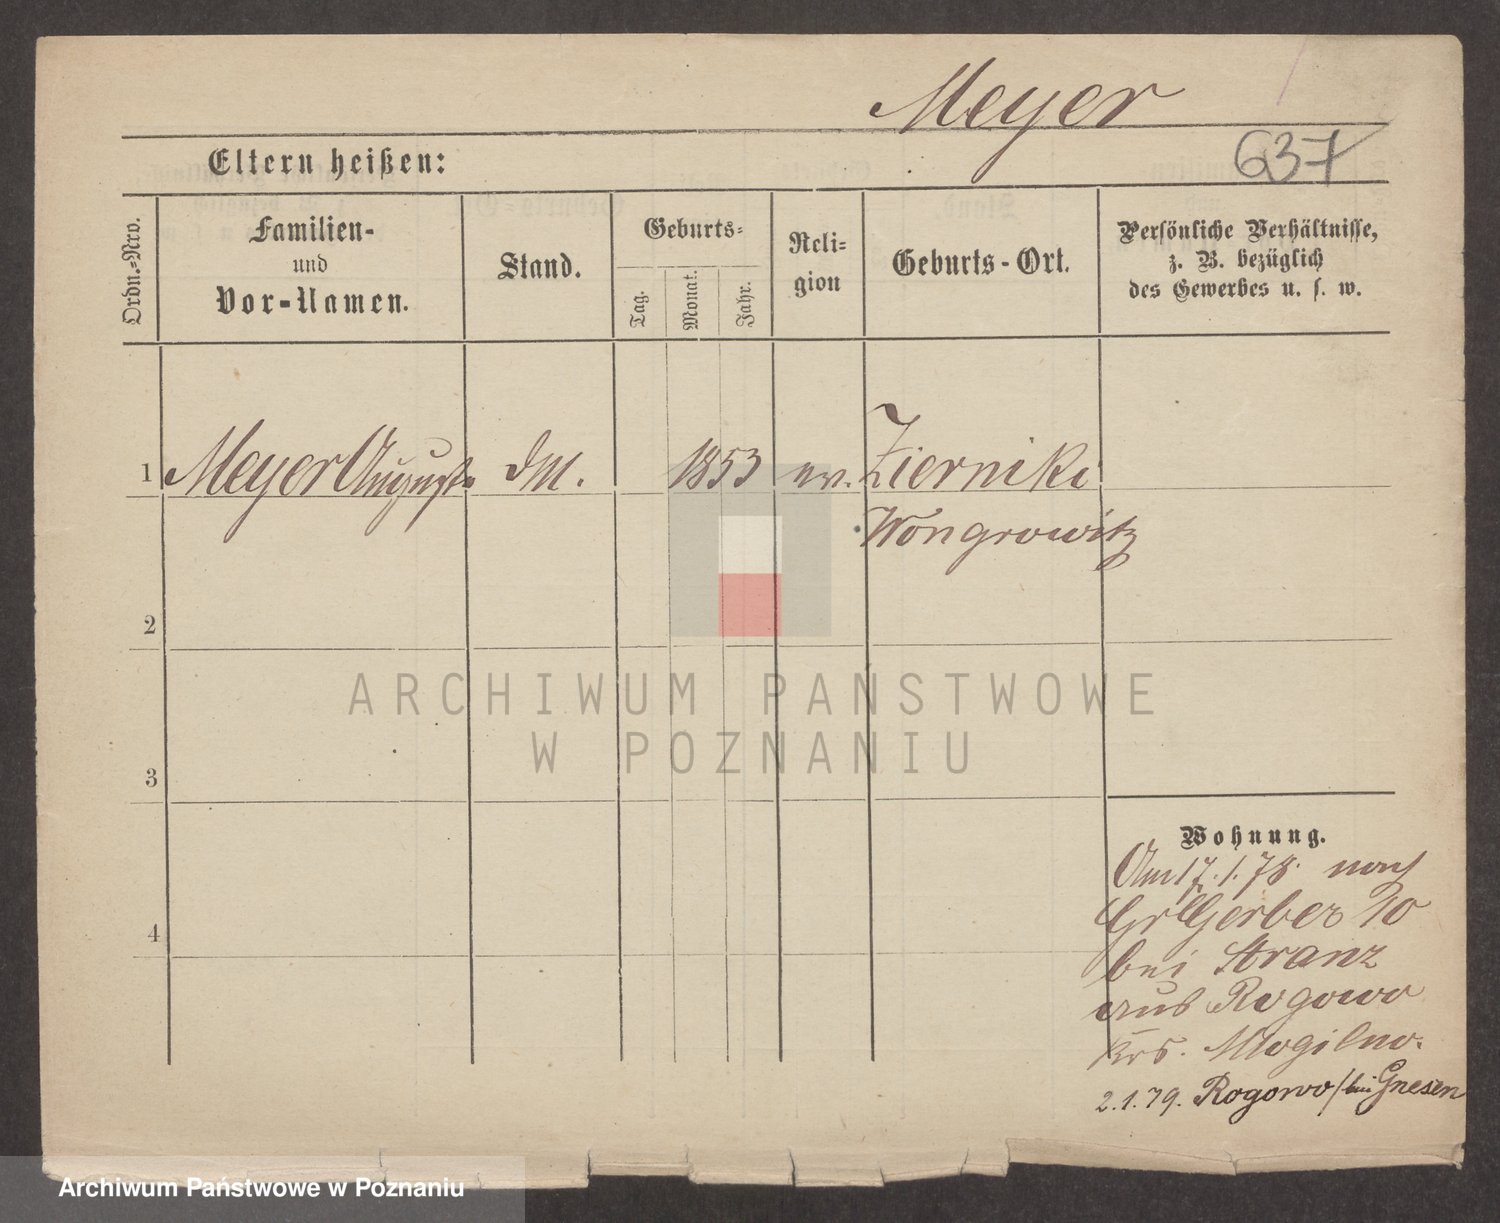 Meyer
637
Eltern heißen:
Ordn.-Nro.
Familien-
und
Vor-Namen.
Stand.
Geburts-
Tag.
Monat.
Jahr.
Reli-
gion
Geburts-Ort.
Persönliche Verhältnisse,
z. B. bezüglich
des Gewerbes u. s. w.
1 Meyer August. 1853 ev. Zierniki
Wongrowitz
2
ARCHIWUM PAŃSTWOWE
W POZNANIU
3
Wohnung.
Am 17.1.78. nach
Gr Gerber 10
4
bei Stranz
aus Rogowo
Krs. Mogilno.
2.1.79. Rogowo/bei Gnesen
Archiwum Państwowe w Poznaniu